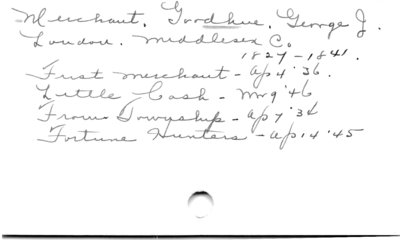 Merchant. Goodhue, George J.
London. Middlesex Co.
1827-1841.
First merchant - Ap 4 '36.
Little Cash - My 9 '46
From Township - Ap 7 '36
Fortune Hunters - Ap 14 '45